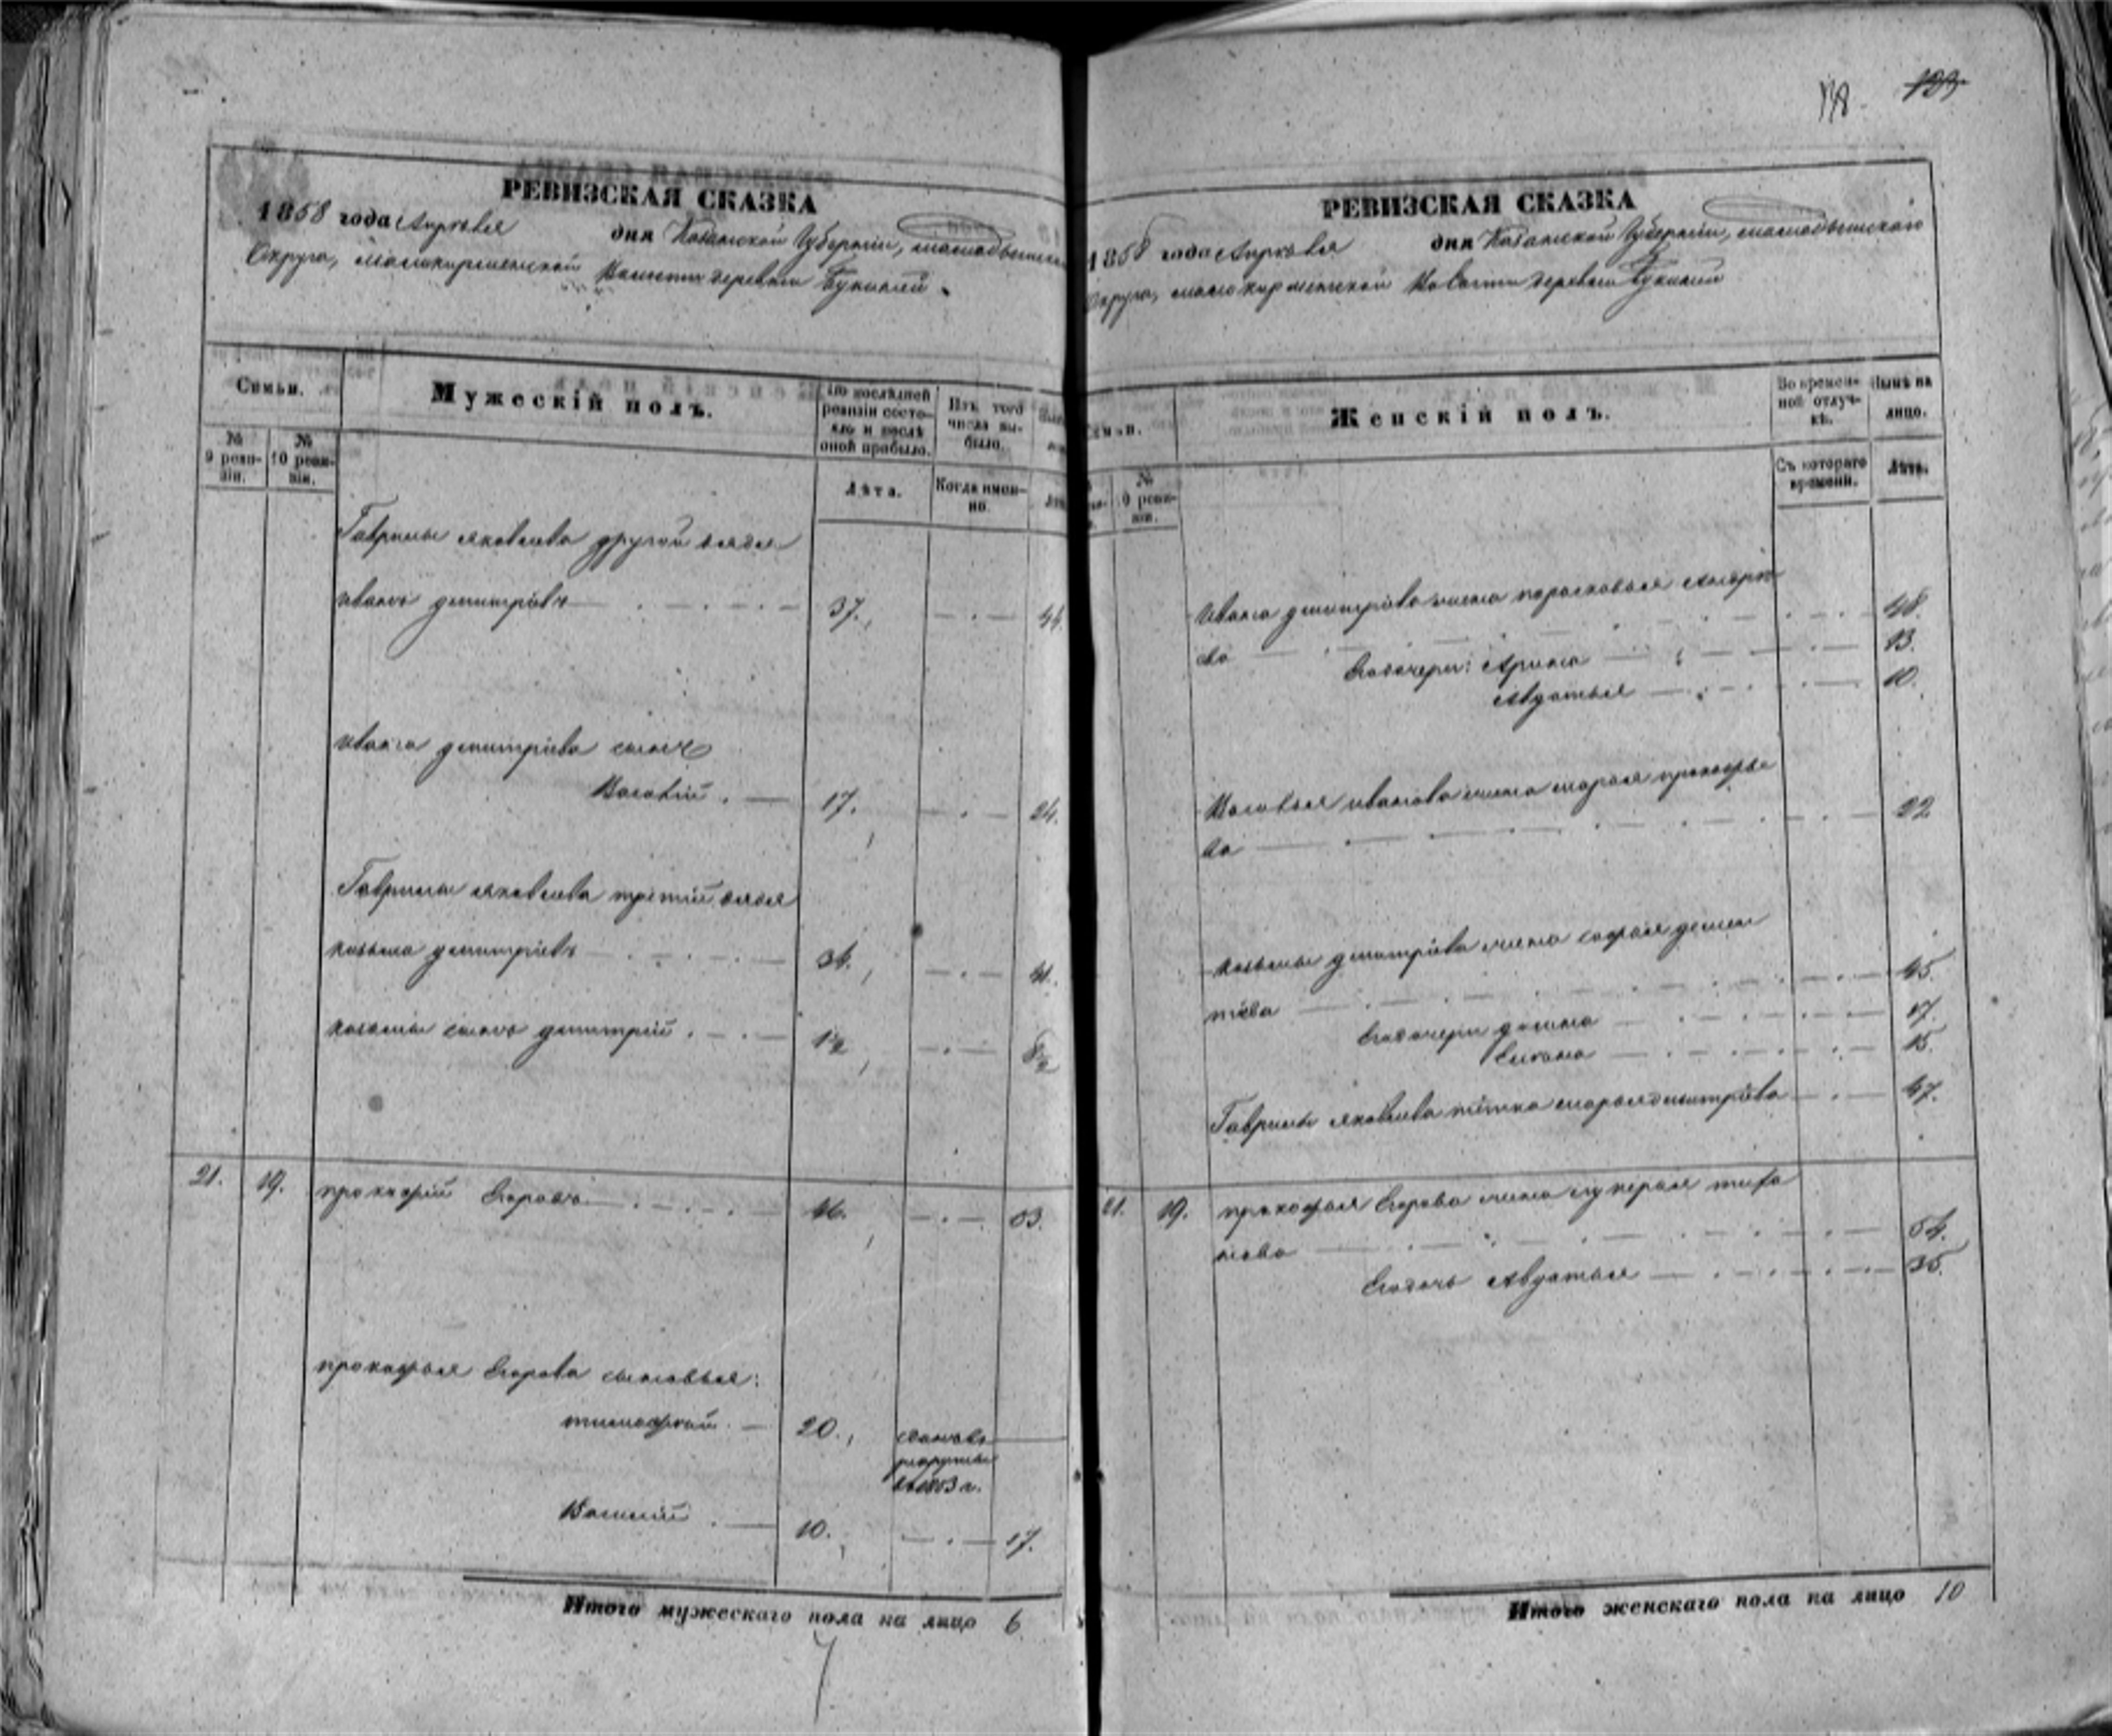 РЕВИЗСКАЯ СКАЗКА
1858 года Апрѣля дня Казанской Губерніи, мамадышскаго
Округа, Волости деревни
Семьи.
Мужескій полъ.
По послѣдней ревизіи состояло и послѣ оной прибыло.
Изъ того числа выбыло.
№ 9 ревизіи.
№ 10 ревизіи.
Лѣта.
Когда именно.
Гаврилы яковлева другой дядя
иванъ дмитріевъ 37. 44.
ивана дмитріева сынъ
17. 24.
Гаврилы яковлева третій дядя
козьма дмитріевъ 34. 41.
козьмы сынъ дмитрій 1/2 8 1/2
21. 19. прокофій Егоровъ 46. 53.
прокофья Егорова сыновья:
тимофѣй 20.
рекруты
въ 1853 г.
Василій 10. 17.
Итого мужескаго пола на лицо 6
7
118 123
РЕВИЗСКАЯ СКАЗКА
1858 года Апрѣля дня Казанской Губерніи, мамадышскаго
Округа, Волости деревни
Женскій полъ.
Во временной отлучкѣ.
Нынѣ на лицо.
№ 10 ревизіи.
Съ котораго времени.
Лѣта.
Ивана дмитріева жена
ва 48.
Егодочери: Арина 13.
Авдотья 10.
иванова жена марья прокофье
ва 22
козьмы дмитріева жена софья демен
тіева 45.
Егодочери 17.
15.
Гаврилы яковлева тётка марья дмитріева 47.
21. 19. прокофья Егорова жена лукерья
нова 54.
Егодочь Авдотья 35.
Итого женскаго пола на лицо 10